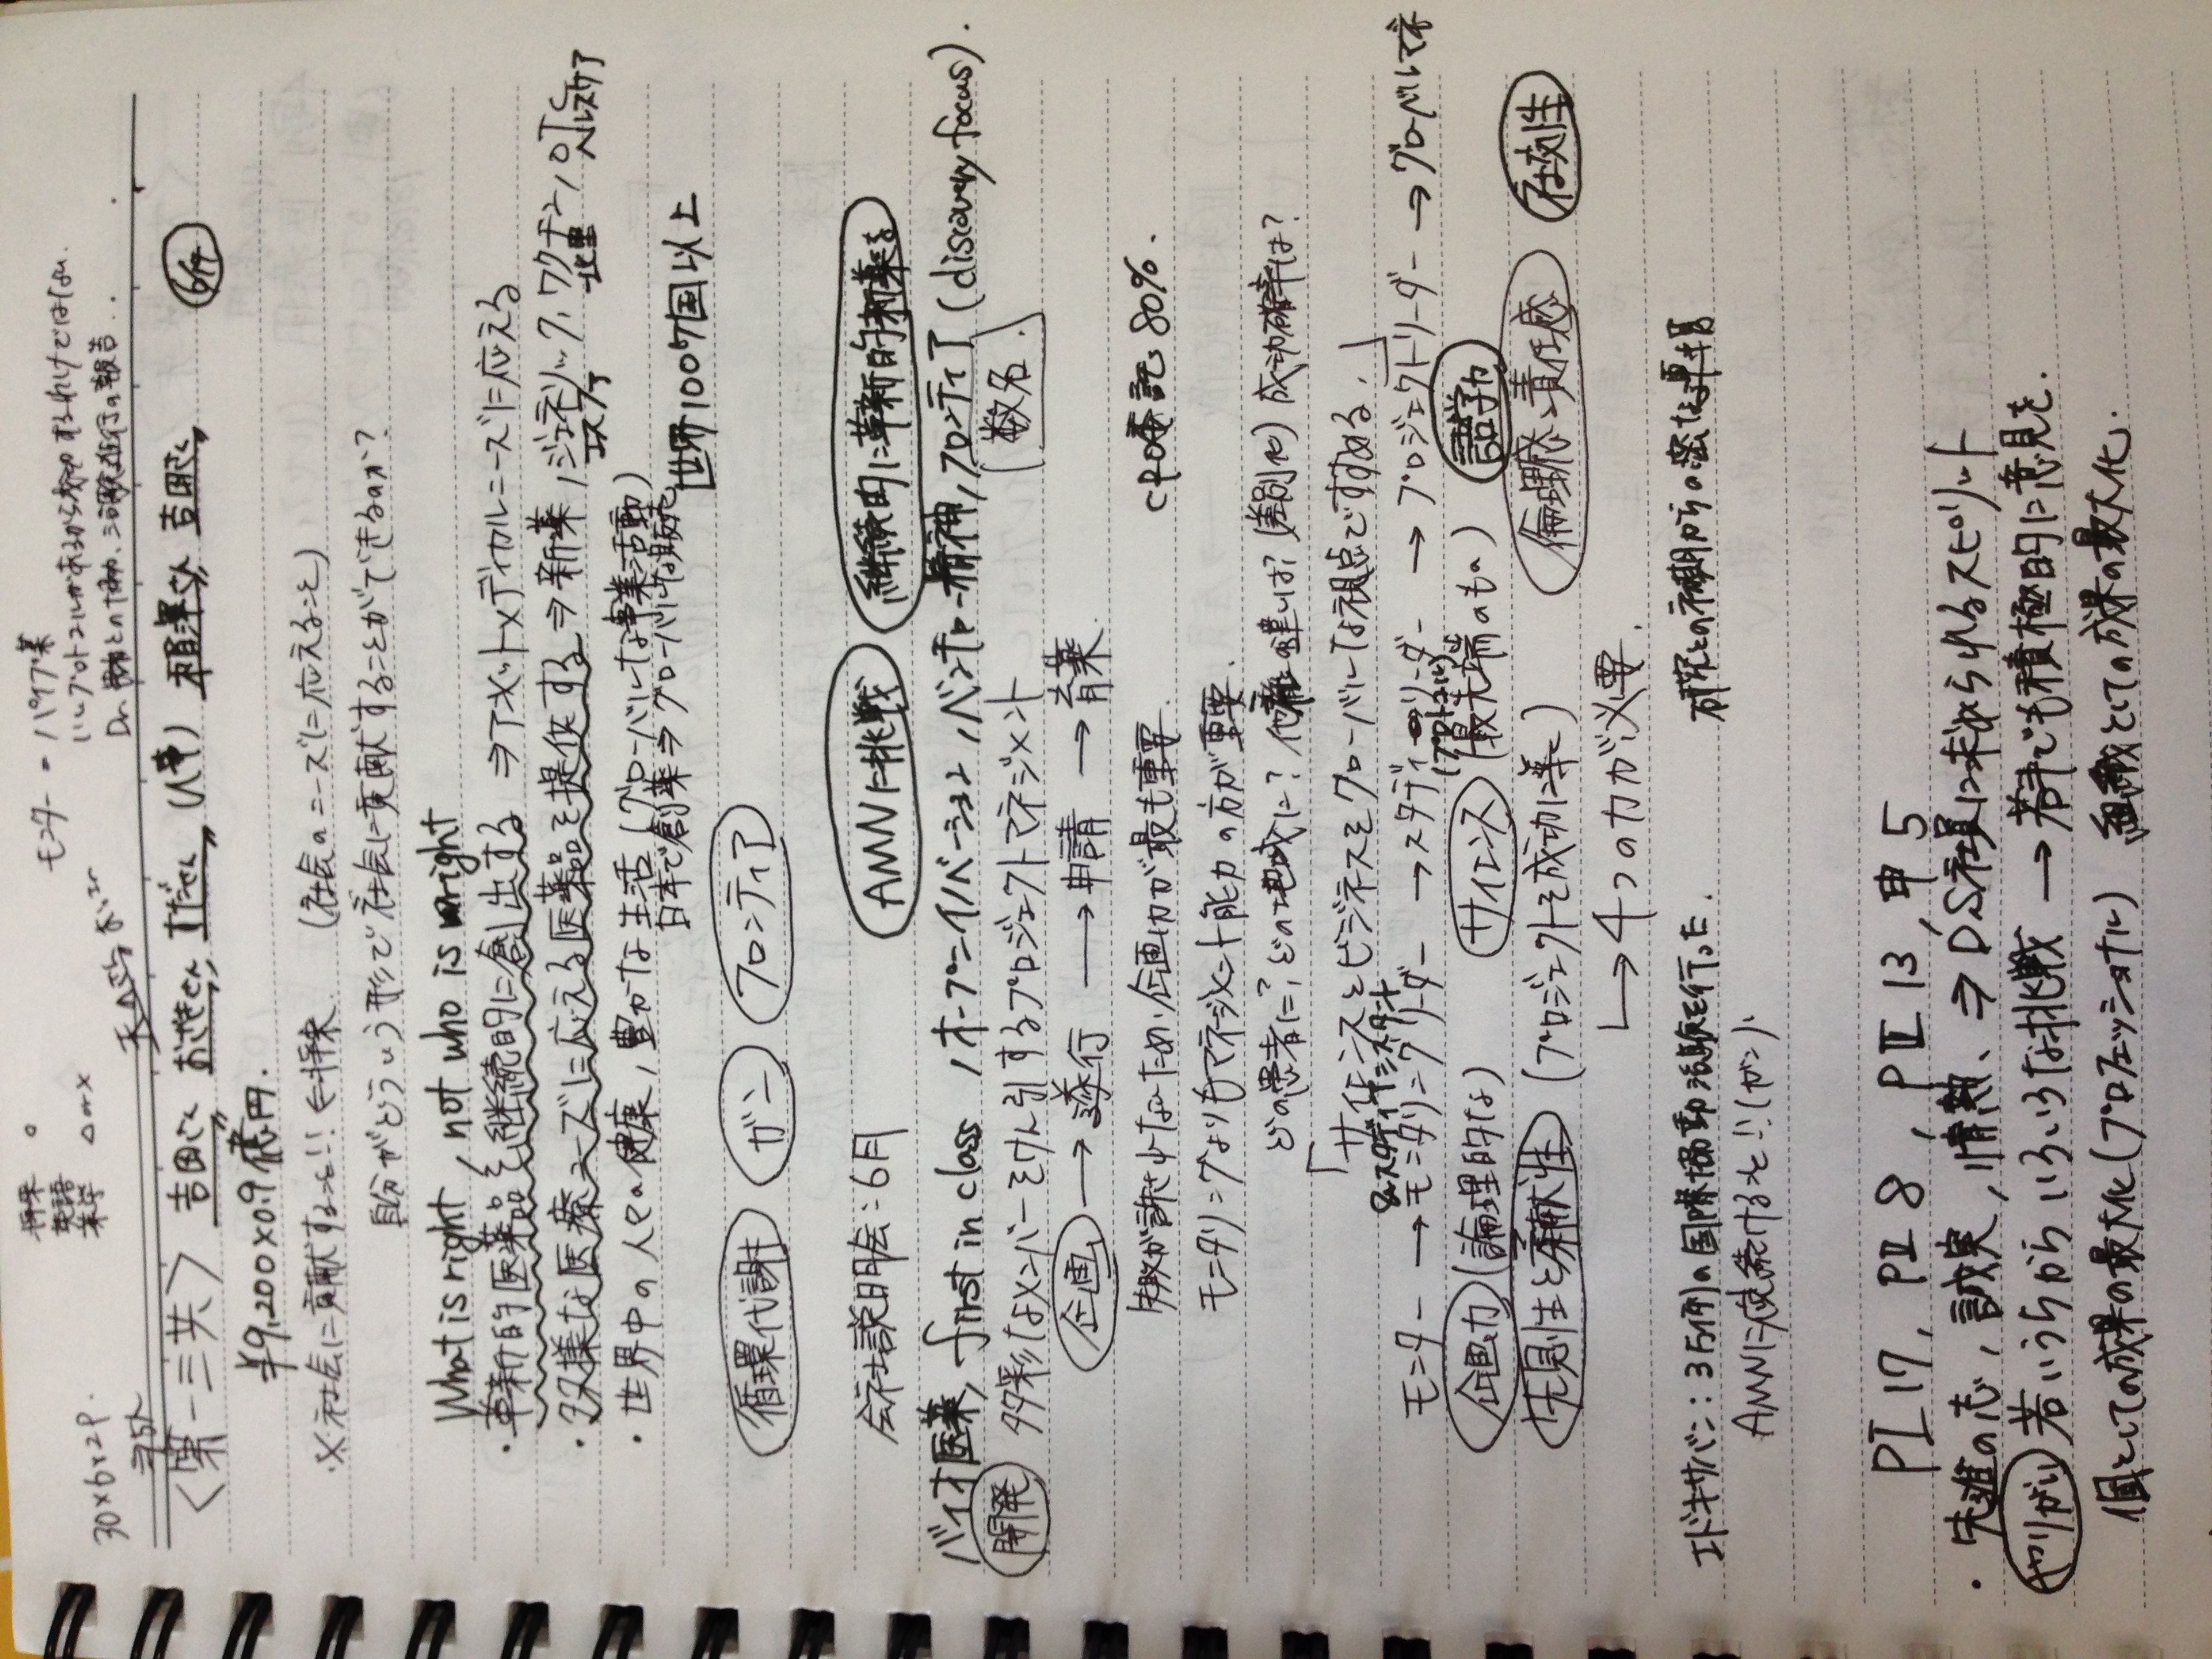 将来 ○
英語
薬学 △or×
30×6×2P.
⇒5人
モニター = パイプ業
いいプロトコルがあるから成功するわけではない.
Dr. 患者との協力、治験進行の報告..
〈第一三共〉 吉田さん おざきさん すださん (人事) 相澤さん 吉田さん 6/14
¥9,200×0.9億円.
※社会に貢献すること!! ⇐将来 (社会のニーズに応えること)
自分がどういう形で社会に貢献することができるのか?
What is right, not who is right
・革新的医薬品を継続的に創出する ⇒アンメットメディカルニーズに応える
・多様な医療ニーズに応える医薬品を提供する⇒新薬,ジェネリック,ワクチン,OTC
エスファ 北里 ヘルスケア
・世界中の人々の健康,豊かな生活(グローバルな事業活動)
日本で創薬⇒グローバルな販売
世界100ヶ国以上
循環代謝 ガン フロンティア
会社説明会:6月 AMNに挑戦 継続的に革新的新薬を
バイオ医薬, first in class ,オープンイノベーション,ベンチャー精神,フロンティア(discovery focus).
開発 多彩なメンバーをけん引するプロジェクトマネジメント [数名.]
企画 → 遂行 → 申請 → 育薬.
失敗が許されないため、企画力が最も重要. CRO委託80%.
モニタリングよりもマネージメント能力の方が重要.
どの患者に?どの地域に? 他薬との違いは?(差別化)成功確率は?
「サイエンスとビジネスをグローバルな視点ですすめる.」
&スタディアシスタント
モニター →モニタリングリーダー →スタディーリーダー → プロジェクトリーダー → グローバルマネ
(プロトコル)
企画力(論理的な) サイエンス(最先端のもの) 語学力
先見性と貢献性(プロジェクトを成功に導く) 倫理感と責任感 社交性
↳4つの力が必要.
エドキサバン:3万例の国際協働治験を行った. 研究との初期からの密な連携
AMNに応え続けること!!(ガン).
PⅠ17, PⅡ8, PⅢ13, 申5
・先進の志,誠実,情熱、⇒DS社員に求められるスピリット
やりがい 若いうちからいろいろな挑戦 → 若手でも積極的に意見を.
個としての成果の最大化(プロフェッショナル) 組織としての成果の最大化.